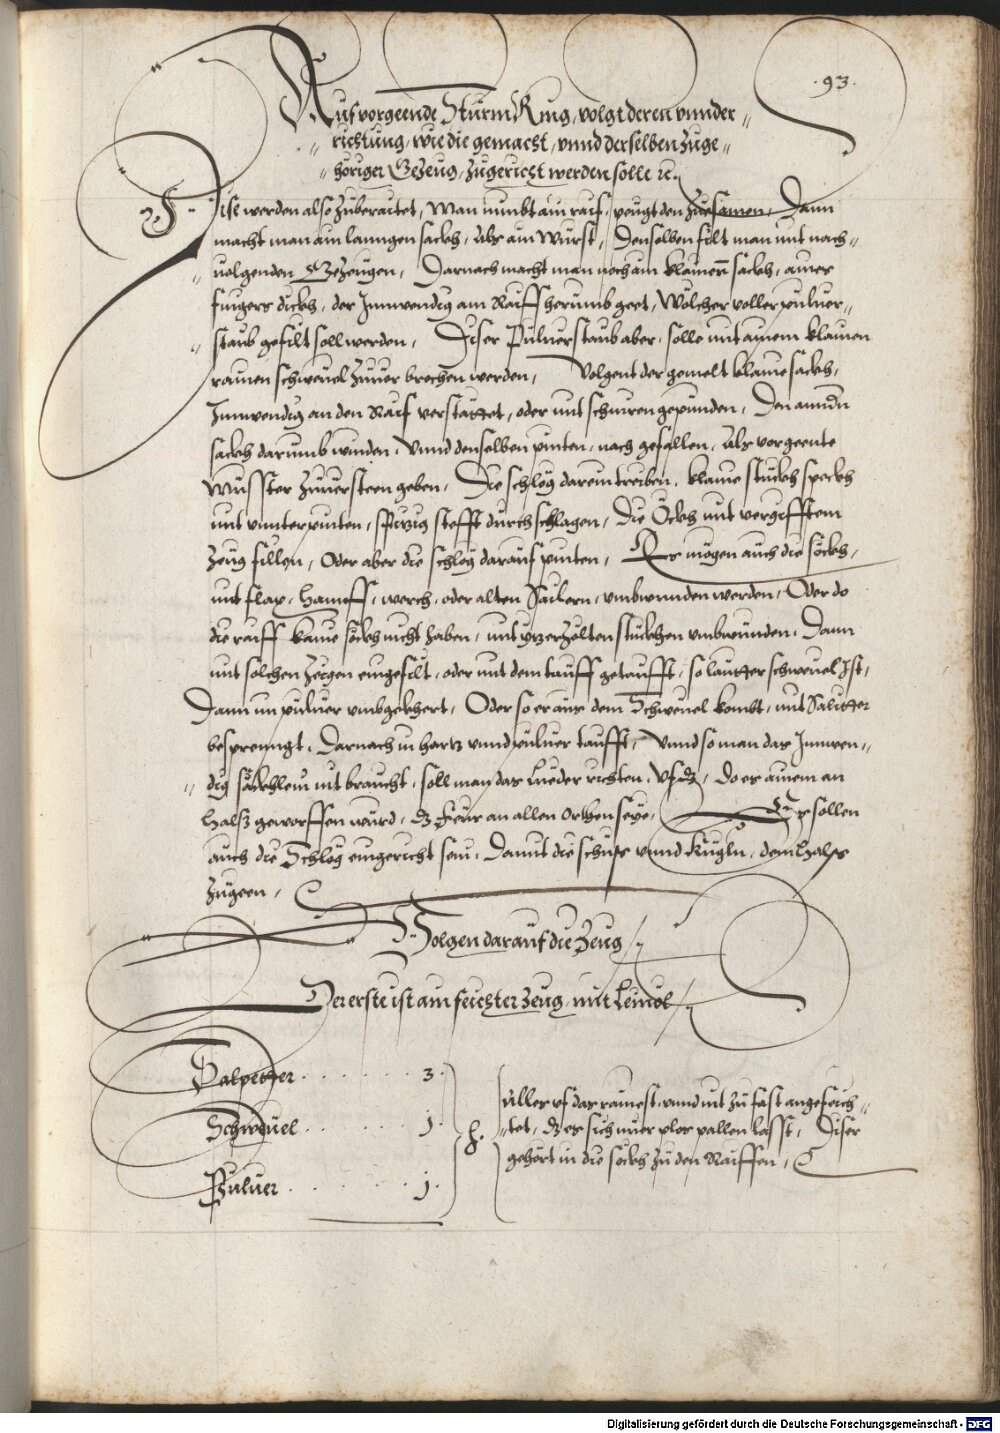 .93.
Auf vorgeende Sturm Ring, volgt deren vnnder=
richtung, wie die gemacht, vnnd derselben zuge=
höriger Gezeug, zugericht werden solle rc.
Dise werden also zuberaitet, Man nimbt ain raif, peugt den zuesamen, Dann
macht man ain lanngen sackh, als ain Wurst, Denselben filt man mit nach=
uolgenden Gezeugen, Darnach macht man noch ain klainen sackh, aines
fingers dickh, der Innwendig am Raiff herumb geet, Wölcher voller puluer=
staub gefilt soll werden, Diser Puluerstaub aber, solle mit ainem klainen
rainen schweuel zuuor brochen werden, Volgent der gemelt klaine sackh,
Innwendig an den Raif, oder mit schnüren gepunden, Den anndern
sackh darumb winden, Vnnd denselben pinten, nach gefallen, als vorgeente
Musster zuuersteen geben, Die schleg darein treiben, klaine stuckh speckh
mit vnnterpinten, spitzig stefft durchschlagen, Die Öckh mit vergifftem
zeug fillen, Oder aber die schleg darauf pinten, Es mögen auch die söckh,
mit flax, Haneff, werch, oder alten Sailern, vmbwunden werden, Oder do
die raiff kaine söckh nicht haben, mit yzerzölten stuckhen vmbwunden, Dann
mit solchen zeugen eingefilt, oder mit dem tauff getaufft, so lautter schweuel Ist,
Dann im puluer vmbgekhert, Oder so er aus dem Schweuel kombt, mit Salitter
besprenngt, Darnach in hartz vnnd puluer taufft, Vnnd so man das Innwen=
dig säckhlein nit braucht, soll man das Lueder richten, do es ainem an
Halß geworffen würd, dz Feur an allen orthen seye, Es sollen
auch die Schleg eingericht sein, Damit die schüss vnnd kugln, dem Halss
zugeen,
Volgen darauf die Zeug
Der erste ist ain feichter zeug, mit Leinöl
Salpetter . . . . . . 3.
Schweuel . . . . . . j.
Puluer . . . . . . j.
Alles vf das rainest, vnnd nit zu fast angefeich=
tet, dz es sich nuer plos pallen lasst, Diser
gehört in die söckh zu den Raiffen,
Digitalisierung gefördert durch die Deutsche Forschungsgemeinschaft - DFG